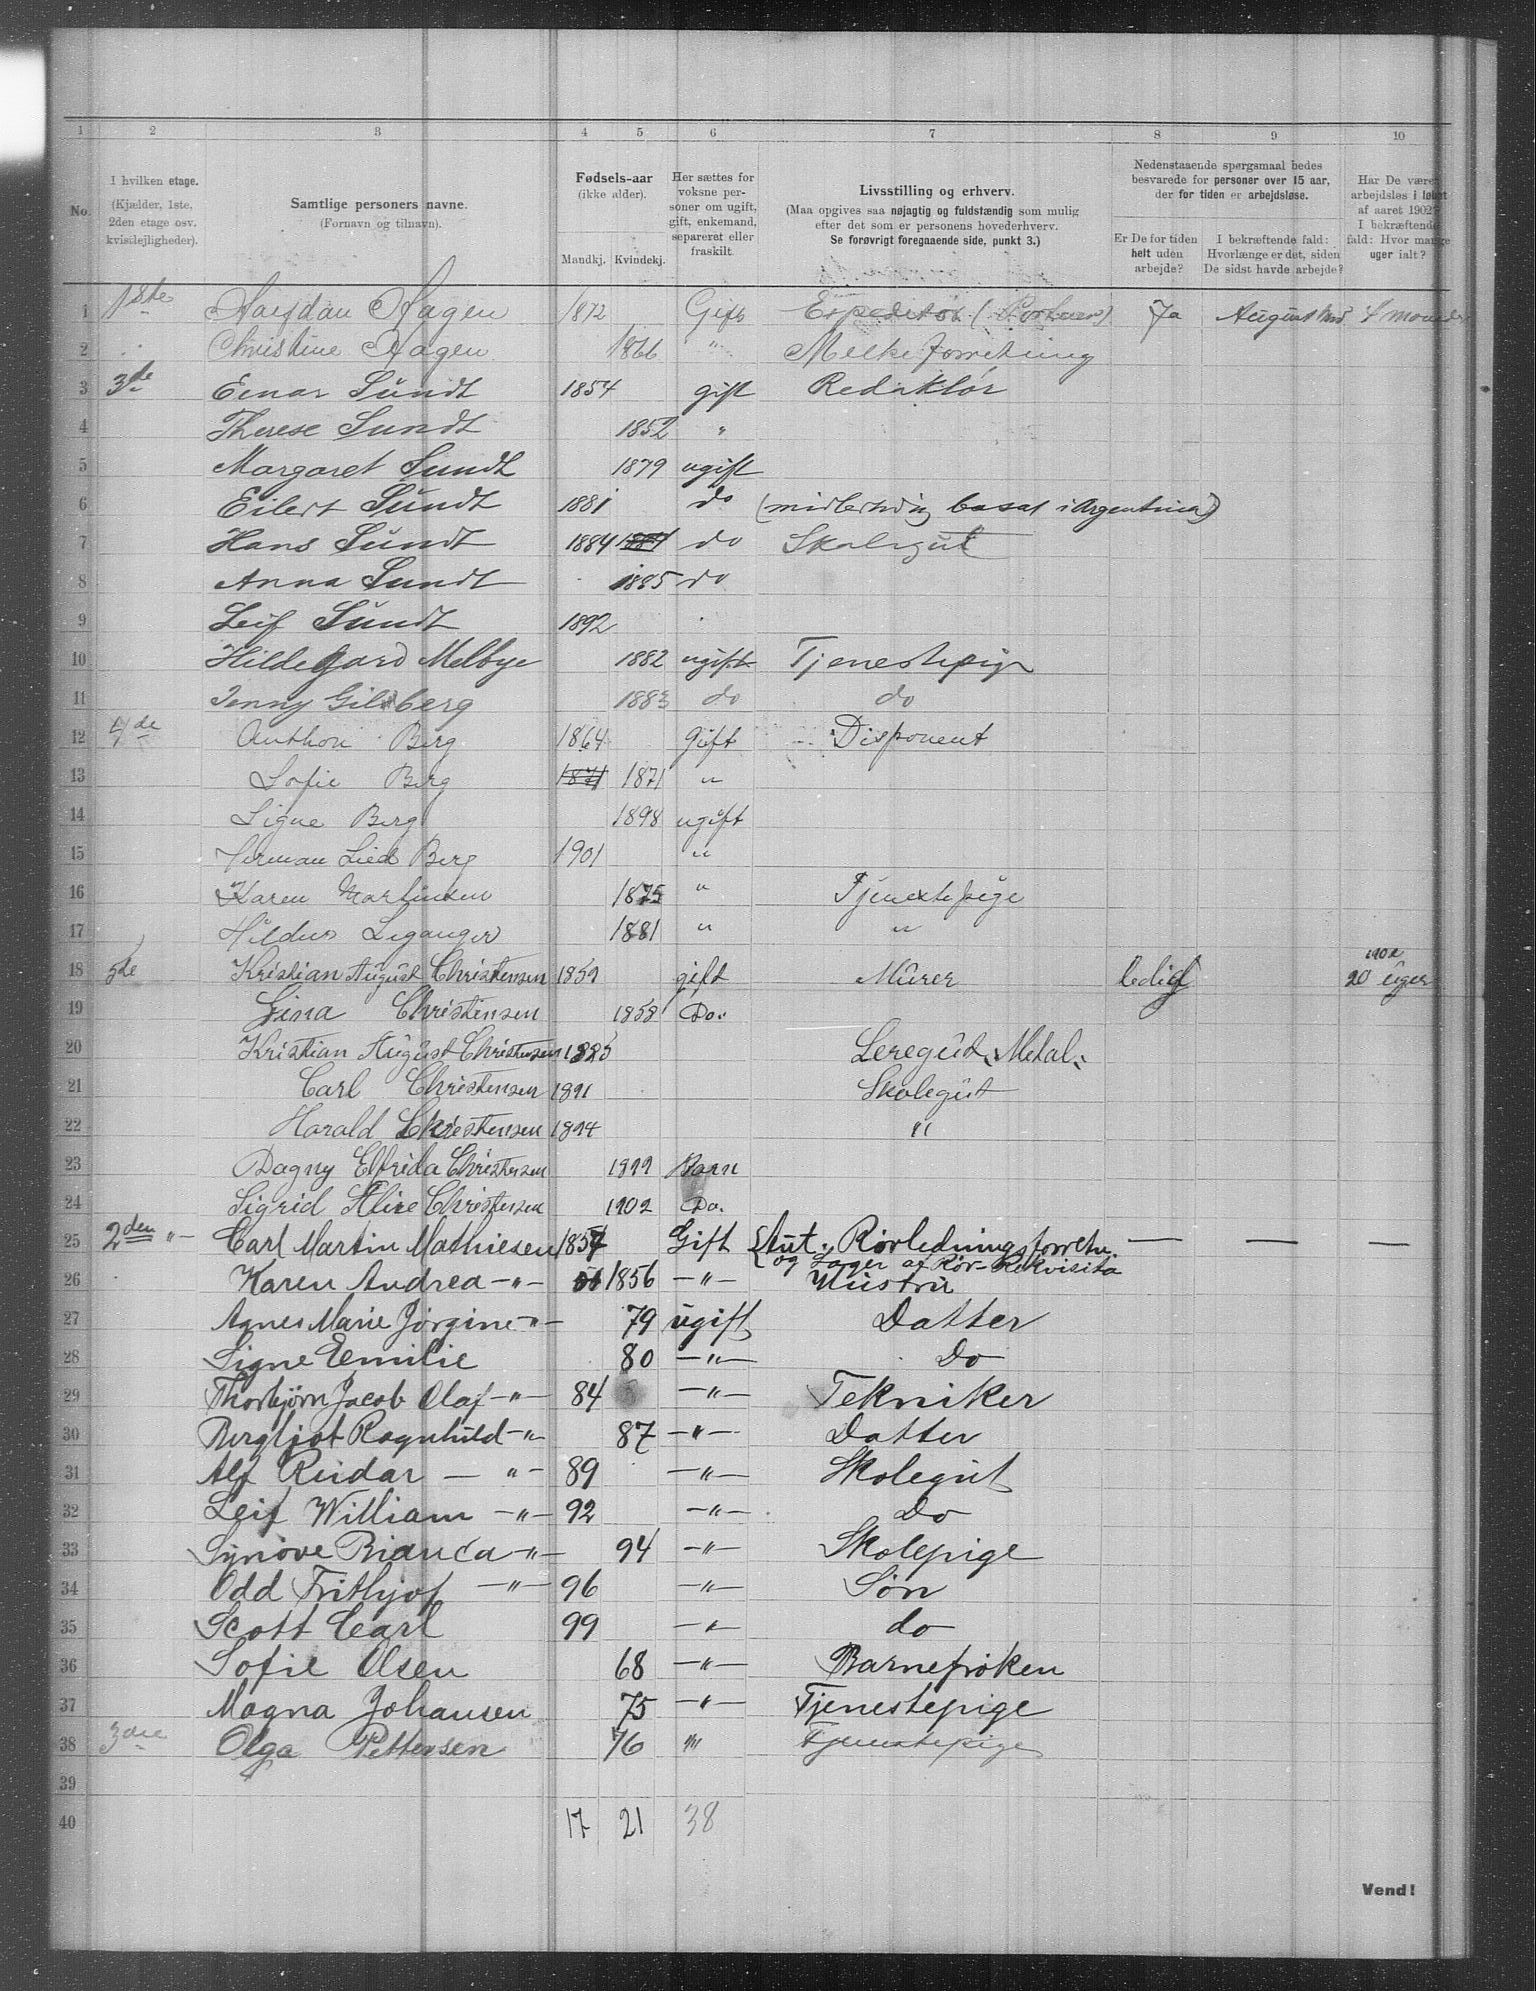 1 2 3 4 5 6 7 8 9 10
No.
I hvilken etage.
(Kjælder, 1ste,
2den etage osv.
kvistlejligheder).
Samtlige personers navne.
(Fornavn og tilnavn).
Fødsels-aar
(ikke alder).
Mandkj. Kvindekj.
Her sættes for
voksne per-
soner om ugift,
gift, enkemand,
separeret eller
fraskilt.
Livsstilling og erhverv.
(Maa opgives saa nøjagtig og fuldstændig som mulig
efter det som er personens hovederhverv.
Se forøvrigt foregaaende side, punkt 3.)
Nedenstaaende spørgsmaal bedes
besvarede for personer over 15 aar,
der for tiden er arbejdsløse.
Er De for tiden
helt uden
arbejde?
I bekræftende fald:
Hvorlænge er det, siden
De sidst havde arbejde?
Har De været
arbejdsløs i løbet
af aaret 1902?
I bekræftende
fald: Hvor mange
uger ialt?
1 1ste Halfdan Hagen 1872 Gift Expeditør Ja August
2 Christine Hagen 1866 " Melkeforretning
3 3de Einar Sundt 1854 gift Redaktør
4 Therese Sundt 1852 "
5 Margaret Sundt 1879 ugift
6 Eilert Sundt 1881 do (midlertidig bosat i Argentina)
7 Hans Sundt 1884 1884 do Skolegut
8 Anna Sundt 1885 do
9 Leif Sundt 1892
10 Hildegard Melbye 1882 ugift Tjenestepige
11 Jenny Gilsberg 1883 do do
12 4de Anthon Berg 1864 Gift Disponent
13 Sofie Berg 1871 1871 "
14 Signe Berg 1898 ugift
15 Herman Lied Berg 1901 "
16 Karen Martinsen 1875 " Tjenestepige
17 Hildur Leganger 1881 " "
18 5de Kristian August Christensen 1859 gift Murer ledig 1902 20 uger
19 Gina Christensen 1858 Do.
20 Kristian August Christensen 1885 Leregut, Metal.
21 Carl Christensen 1891 Skolegut
22 Harald Christensen 1894 "
23 Dagny Elfrida Christensen 1899 Barn
24 Sigrid Alice Christensen 1902 Do.
25 2den " - Carl Martin Mathiesen 1857 Gift {Aut. Rørledningsforretn. — — —
og Lager af Rør-Rekvisita
26 Karen Andrea -"- 56 1856 -"- Hustru
27 Agnes Marie Jørgine -"- 79 ugift Datter
28 Signe Emilie 80 -"- Do
29 Thorbjørn Jacob Olaf -"- 84 -"- Tekniker
30 Bergljot Ragnhild -"- 87 -"- Datter
31 Alf Reidar -"- 89 -"- Skolegut
32 Leif William -"- 92 -"- Do
33 Synøve Bianca -"- 94 -"- Skolepige
34 Odd Frithjof -"- 96 -"- Søn
35 Scott Carl 99 -"- do
36 Sofie Olsen 68 -"- Barnefrøken
37 Magna Johansen 75 -"- Tjenestepige
38 3die Olga Pettersen 76 -"- Tjenestepige
39
40 17 21 38
Vend!